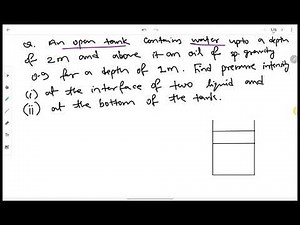 Q. An open tank contains water upto a depth
of 2m and above it an oil of sp. gravity
0.9 for a depth of 1m. Find pressure intensity
(i) at the interface of two liquid and
(ii) at the bottom of the tank.